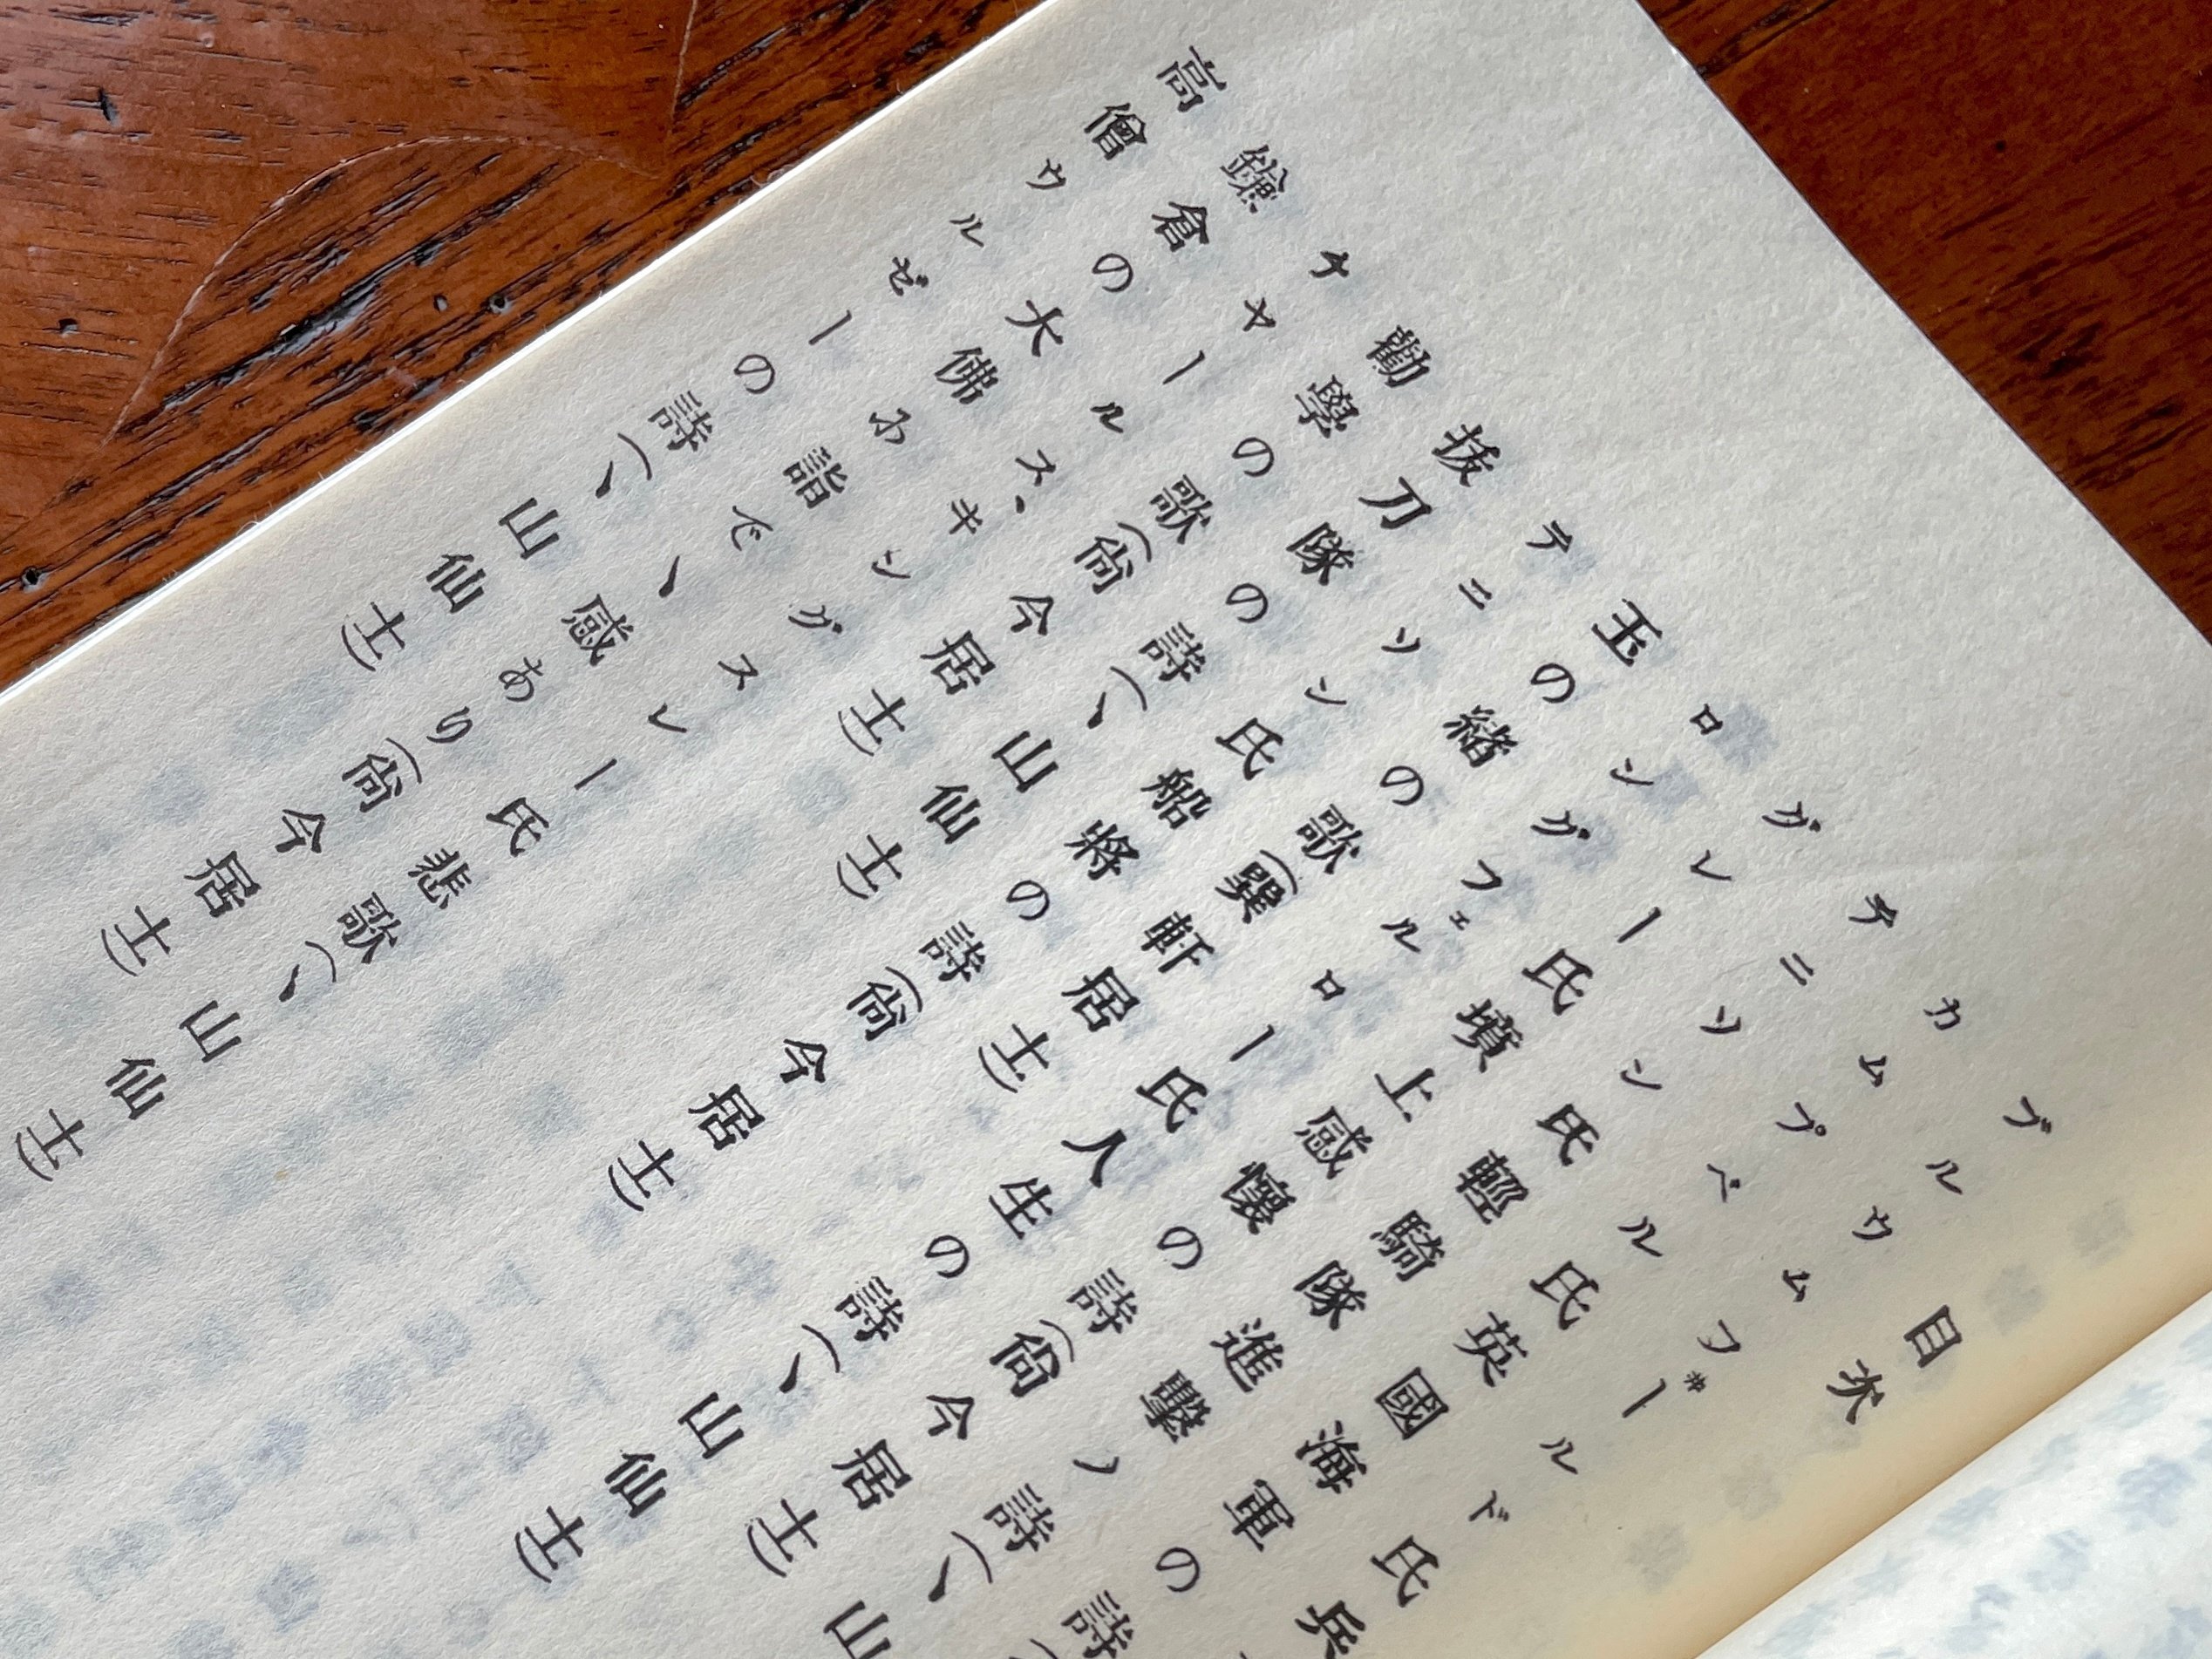 目次
ブルウムフヰールド氏兵
カムプベル氏英國海軍の詩(
テニソン氏輕騎隊進擊ノ詩(ヽ山
グレー氏墳上感懷の詩(尙今居士)
ロングフェルロー氏人生の詩(ヽ山仙士)
玉の緒の歌(巽軒居士)
テニソン氏船將の詩(尙今居士)
拔刀隊の詩(ヽ山仙士)
勸學の歌(尙今居士)
チヤールス、キングスレー氏悲歌(ヽ山仙士)
鎌倉の大佛に詣でゝ感あり(尙今居士)
高僧ウルゼーの詩(ヽ山仙士)